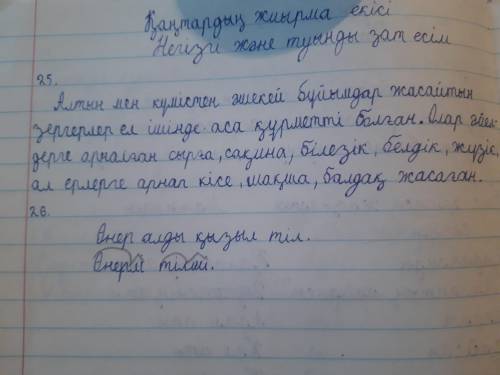 Қаңтардың жиырма екісі
Негізгі және туынды зат есім
25.
Алтын мен күмістен әшекей бұйымдар жасайтын
зергерлер ел ішінде аса құрметті болған. Олар әйел-
дерге арналған сырға, сақина, білезік, белдік, жүзік,
ал ерлерге арнап кісе, шақша, балдақ жасаған.
26.
Өнер алды қызыл тіл.
Өнерлі тілдей.